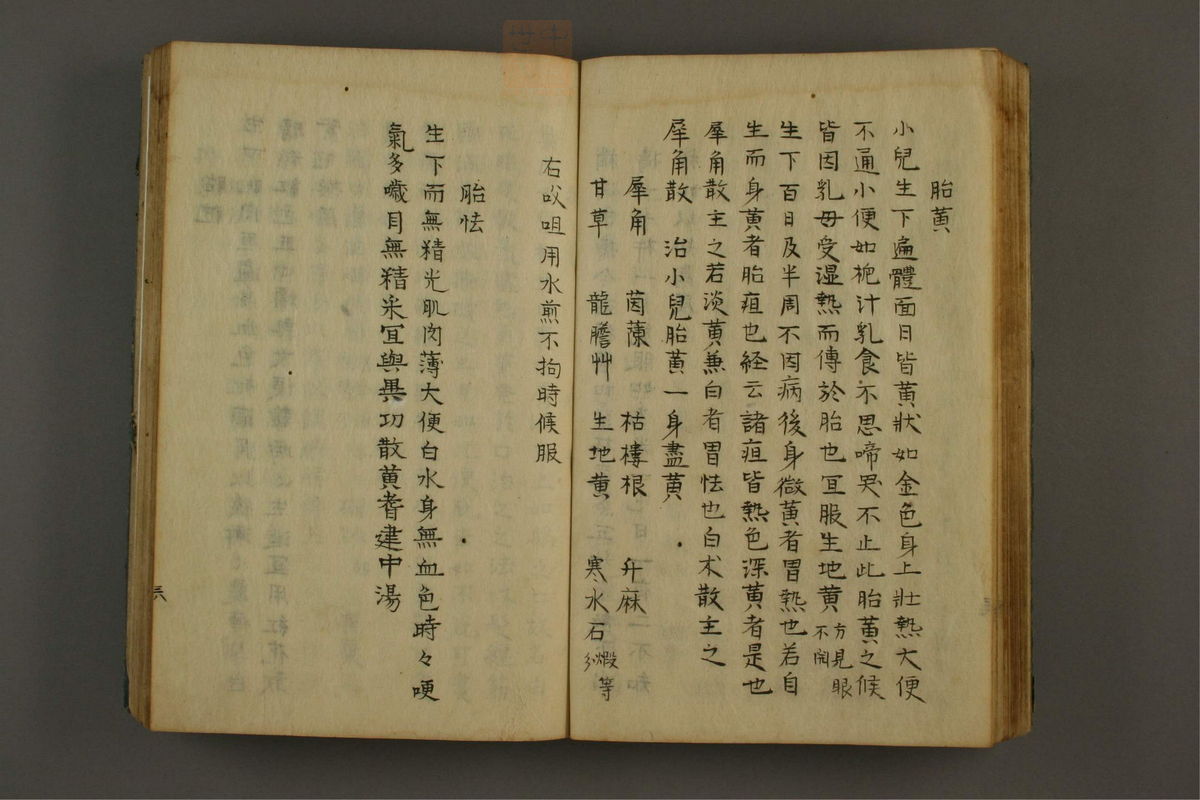 胎黄
小兒生下遍體面目皆黄狀如金色身上壯熱大便
不通小便如梔汁乳食不思啼哭不止此胎黄之候
皆因乳母受湿熱而傳於胎也宜服生地黄方見眼不開
生下百日及半周不因病後身微黄者胃熱也若自
生而身黄者胎疸也経云諸疸皆熱色深黄者是也
犀角散主之若淡黄兼白者胃怯也白术散主之
犀角散 治小兒胎黄一身盡黄
犀角 茵蔯 枯樓根 升麻
甘草 龍膽艸 生地黄 寒水石煅等分
右㕮咀用水煎不拘時候服
胎怯
生下而無精光肌肉薄大便白水身無血色時々哽
氣多噦目無精采宜與異功散黄耆建中湯